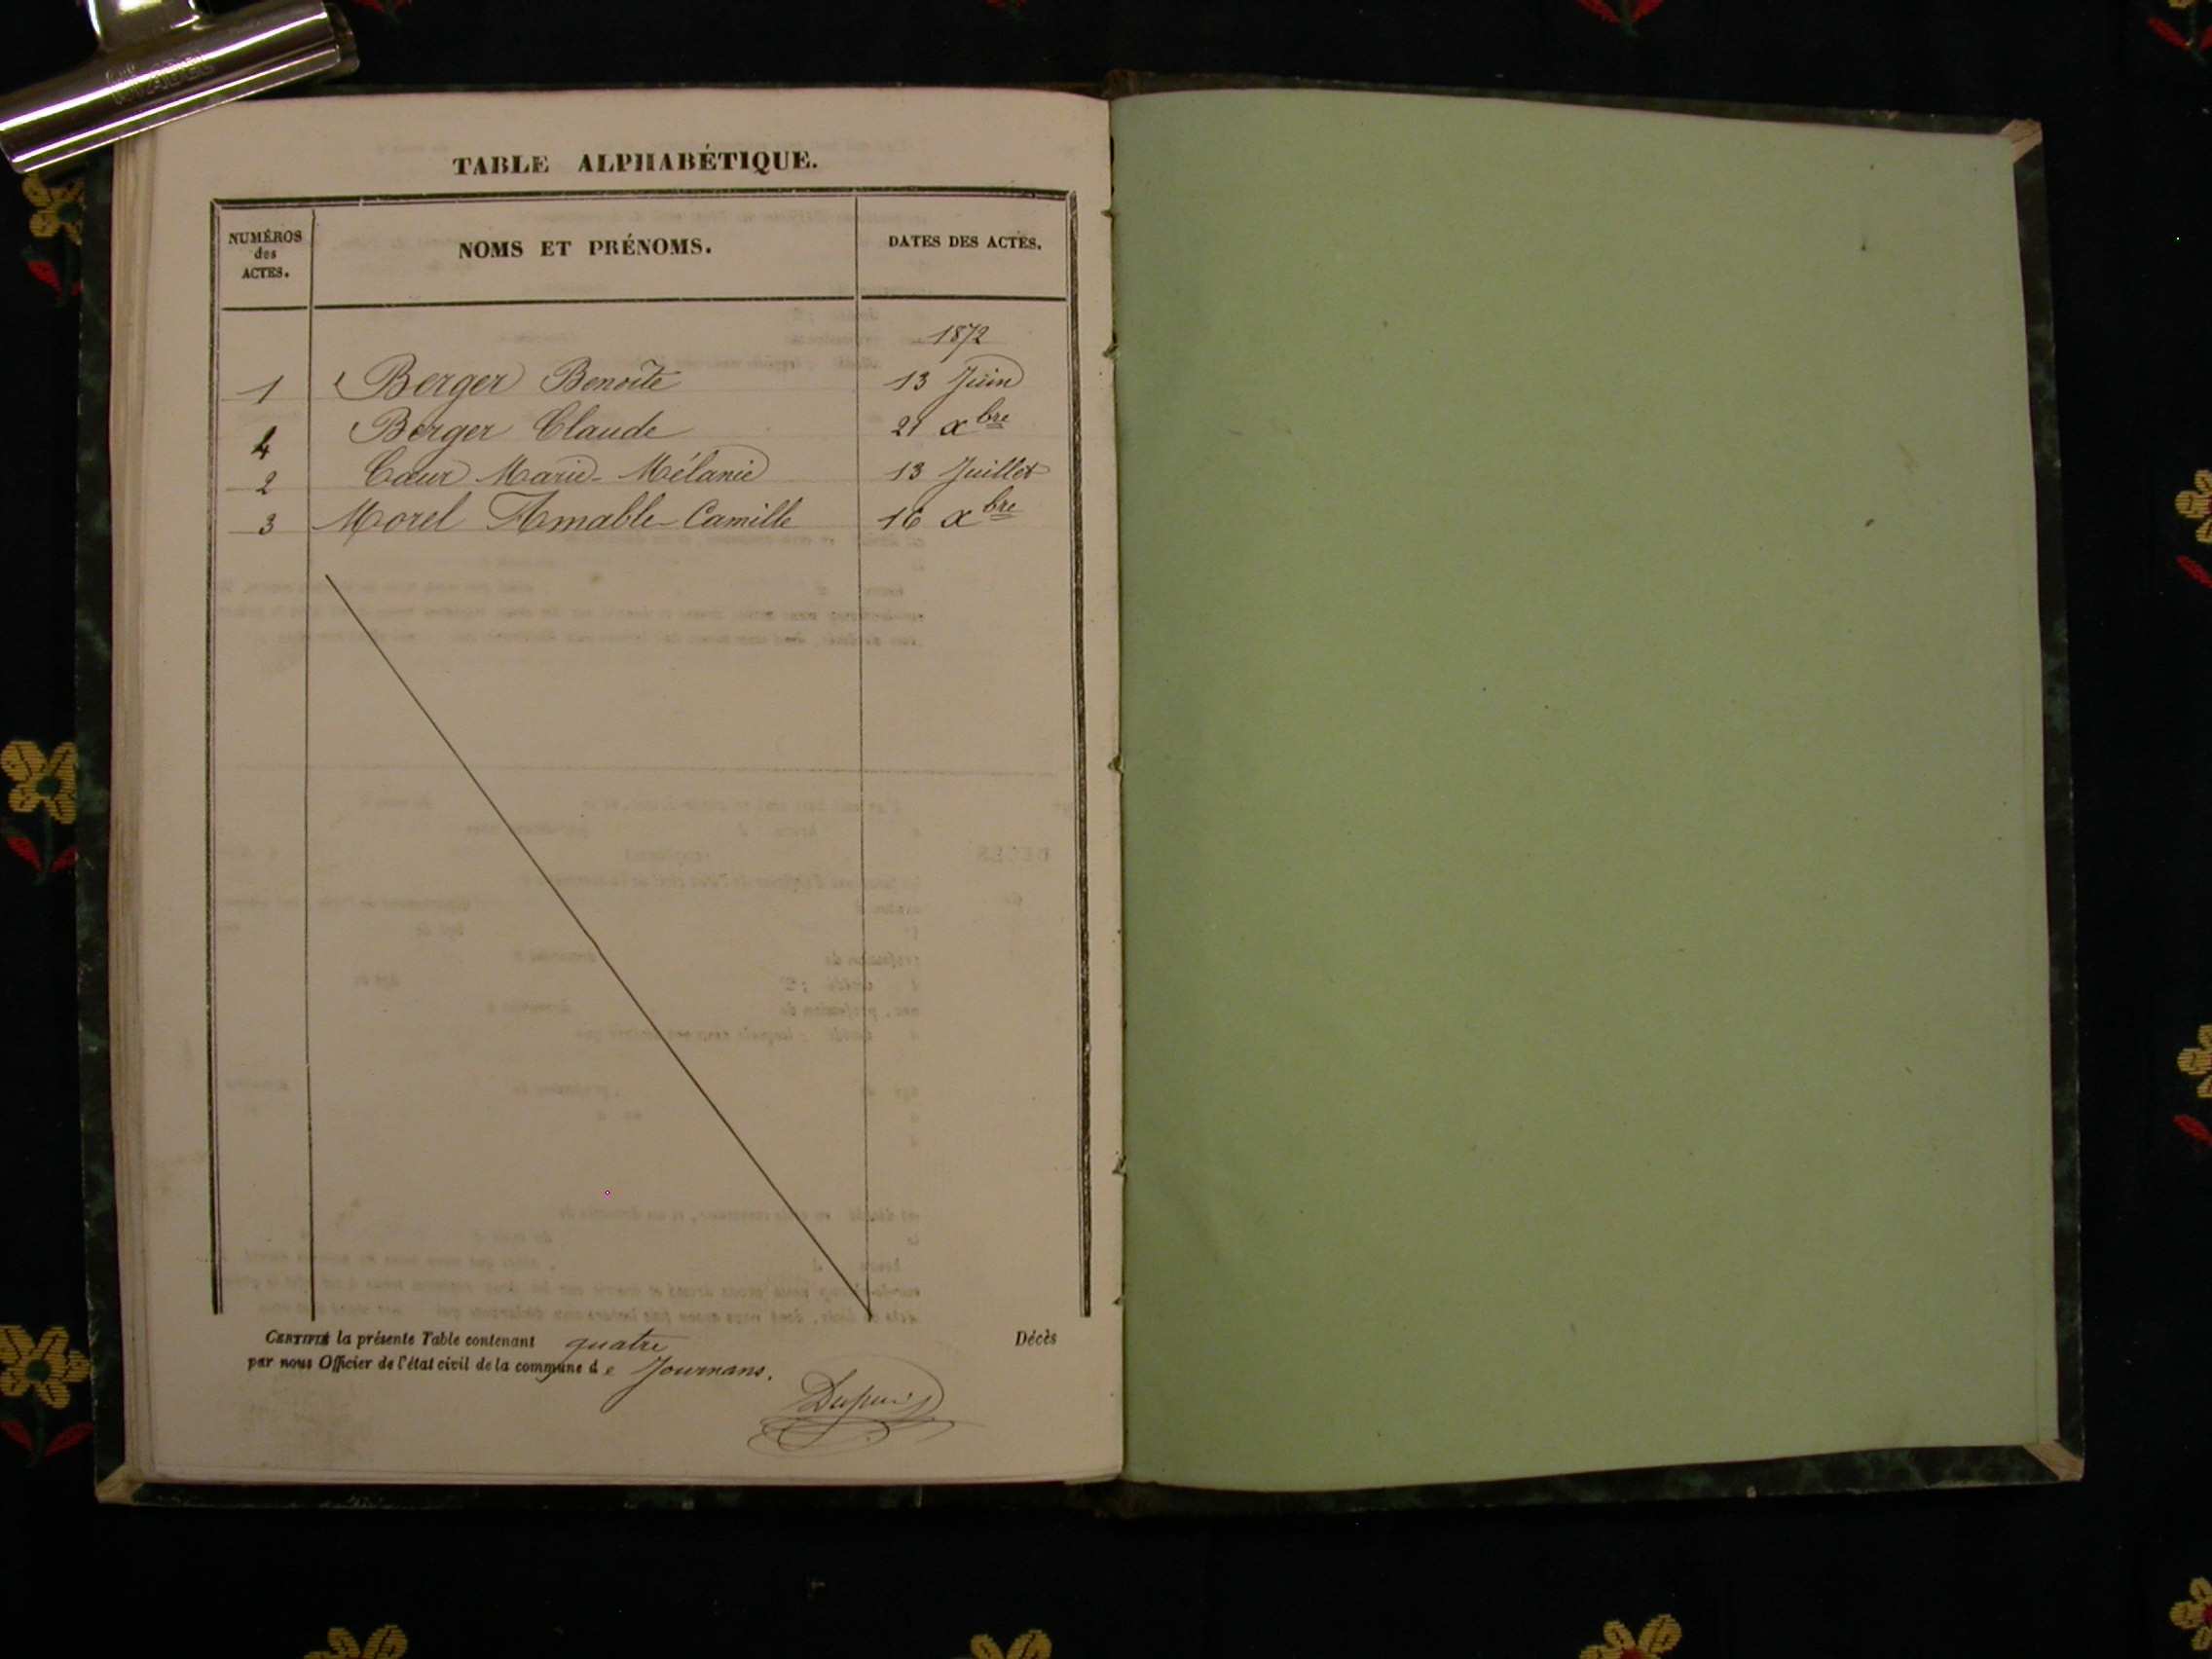 TABLE ALPHABÉTIQUE.
NUMÉROS des ACTES. NOMS ET PRÉNOMS. DATES DES ACTES.
1872
1 Berger Benoîte 13 Juin
4 Berger Claude 21 xbre
2 Cœur Marie-Mélanie 13 Juillet
3 Morel Amable-Camille 16 xbre
CERTIFIÉ la présente Table contenant quatre Décès
par nous Officier de l'état civil de la commune de Journans.
Dupuis